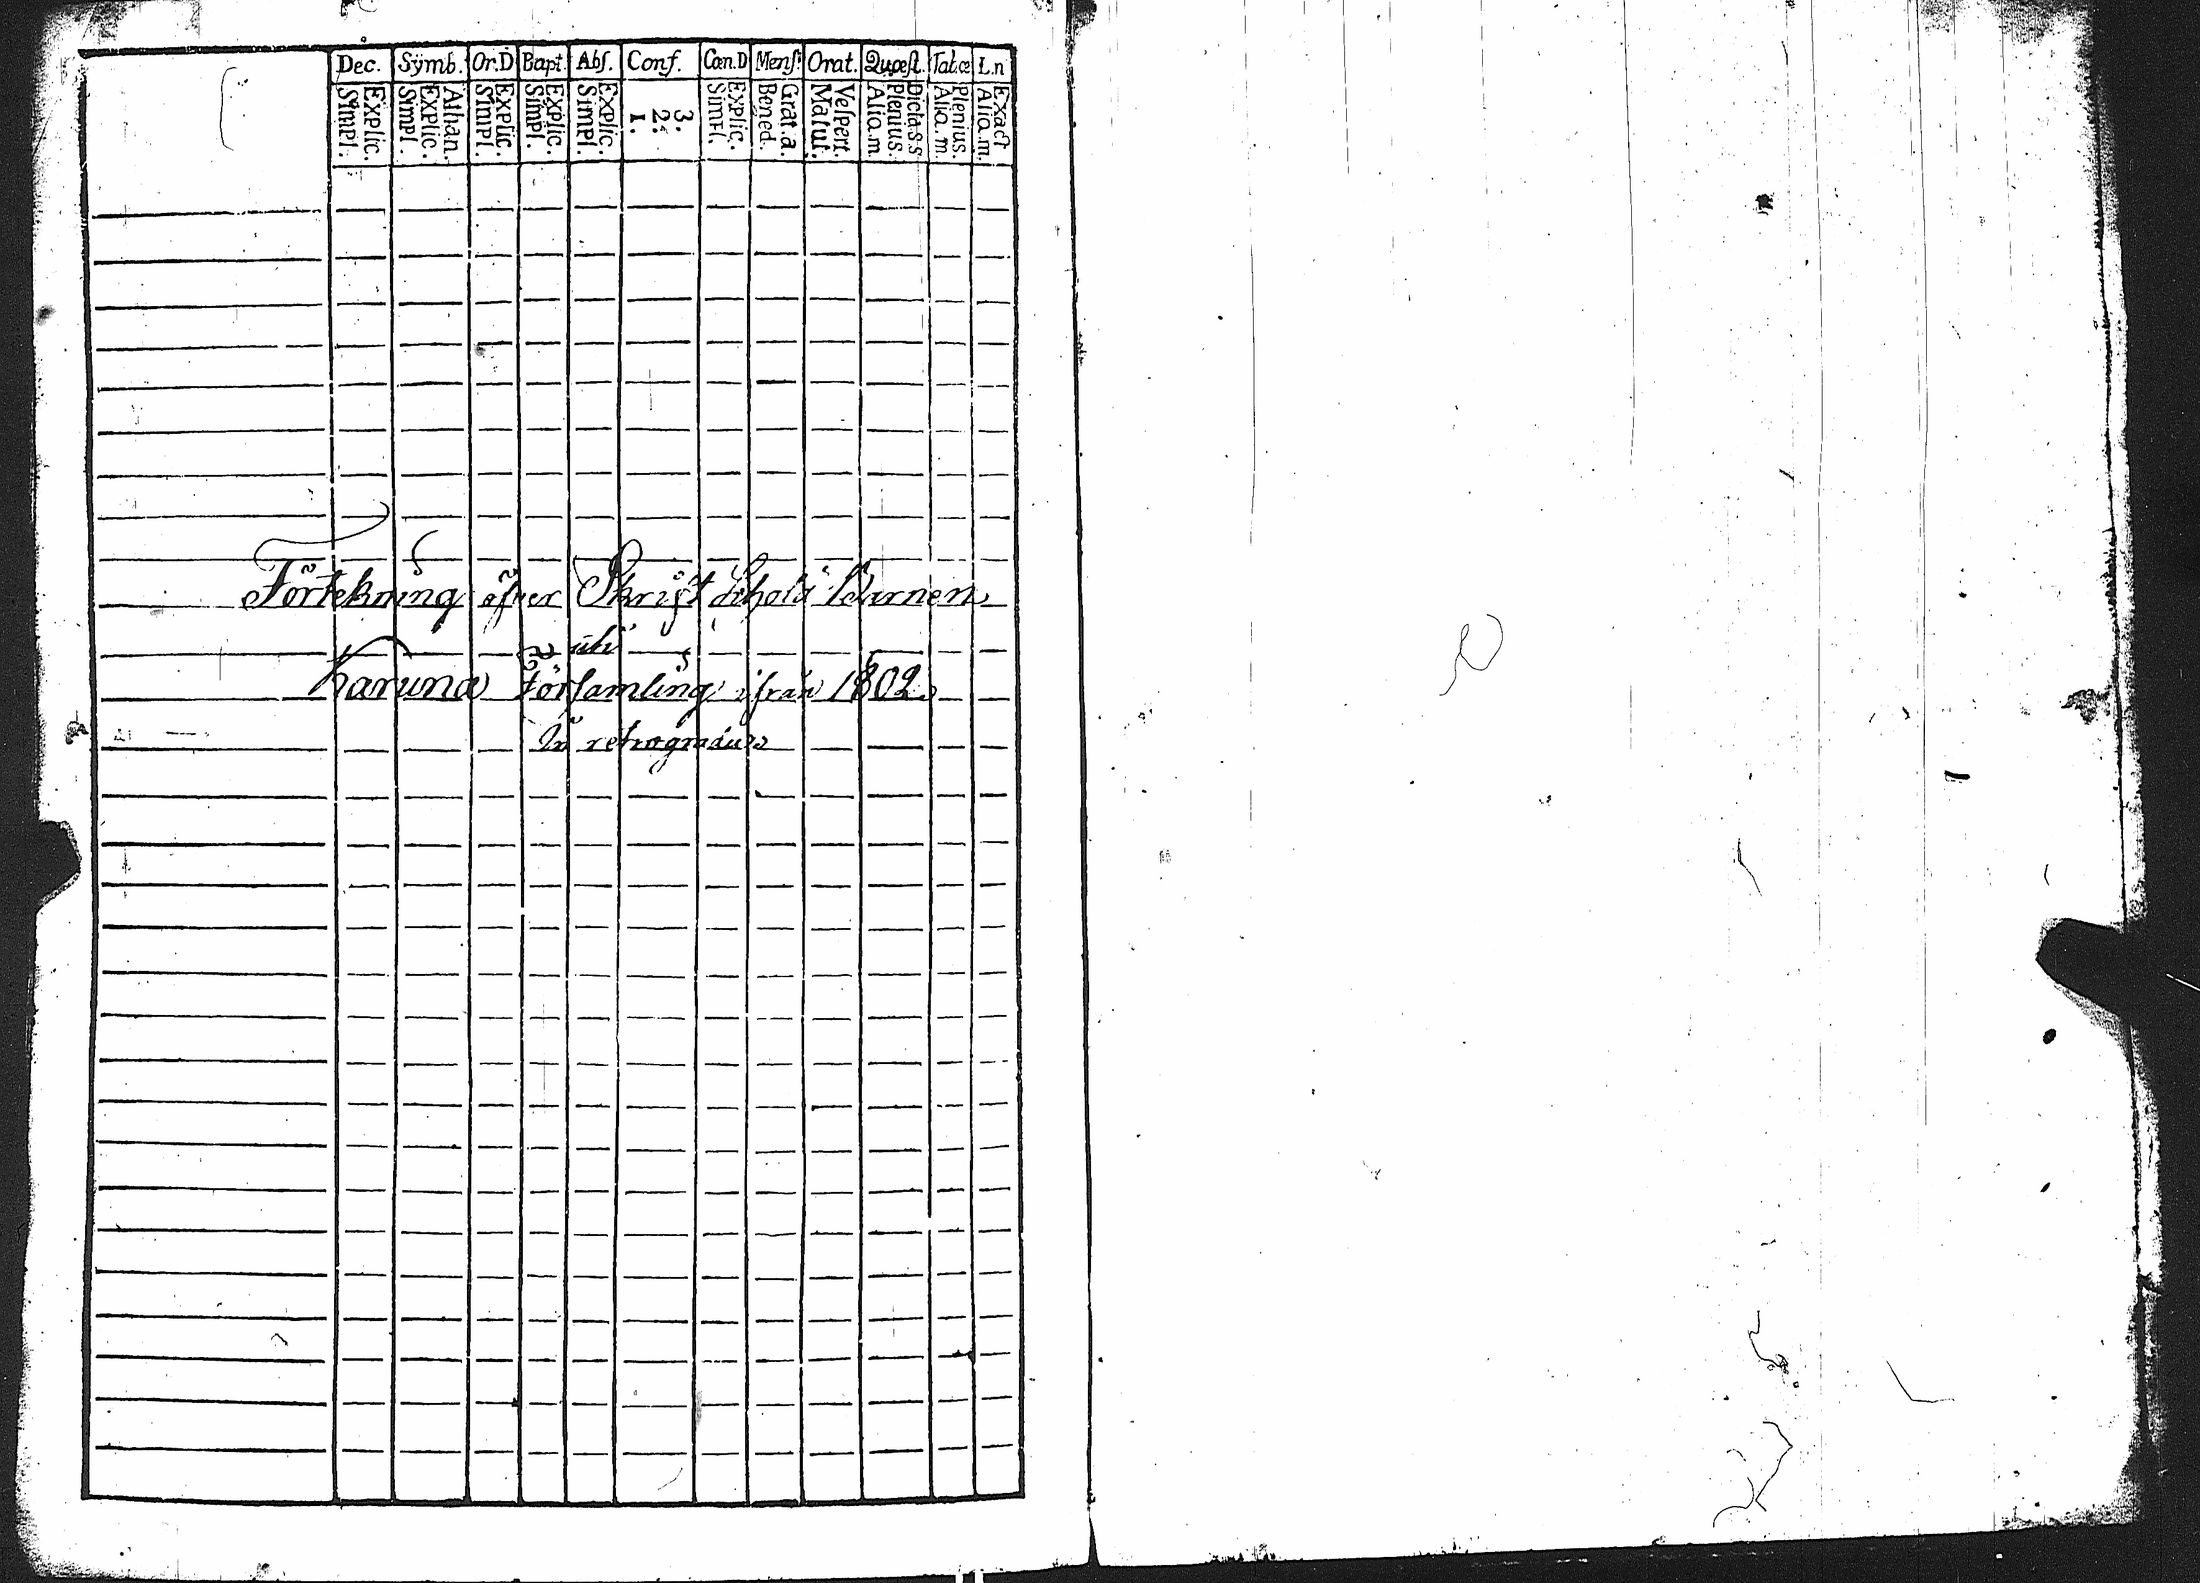 Dec. Symb. Or.D Bapt. Abſ. Conf. Cœn.D Menſ. Orat. Quæſt. Tab.œ L.n
Explic. Simpl. Athan. Explic. Simpl. Explic. Simpl. Explic. Simpl. Explic. Simpl. 3. 2. 1. Explic. Simpl. Grat.a. Bened. Veſpert. Matut. Dicta.s.s Plenius. Alia.m Plenius. Alia.m. Exact Alia.m.
Förtekning öfver Skrift Schola Barnen
uti
Karuna Förſamling ifrån 1802
In retrogradus